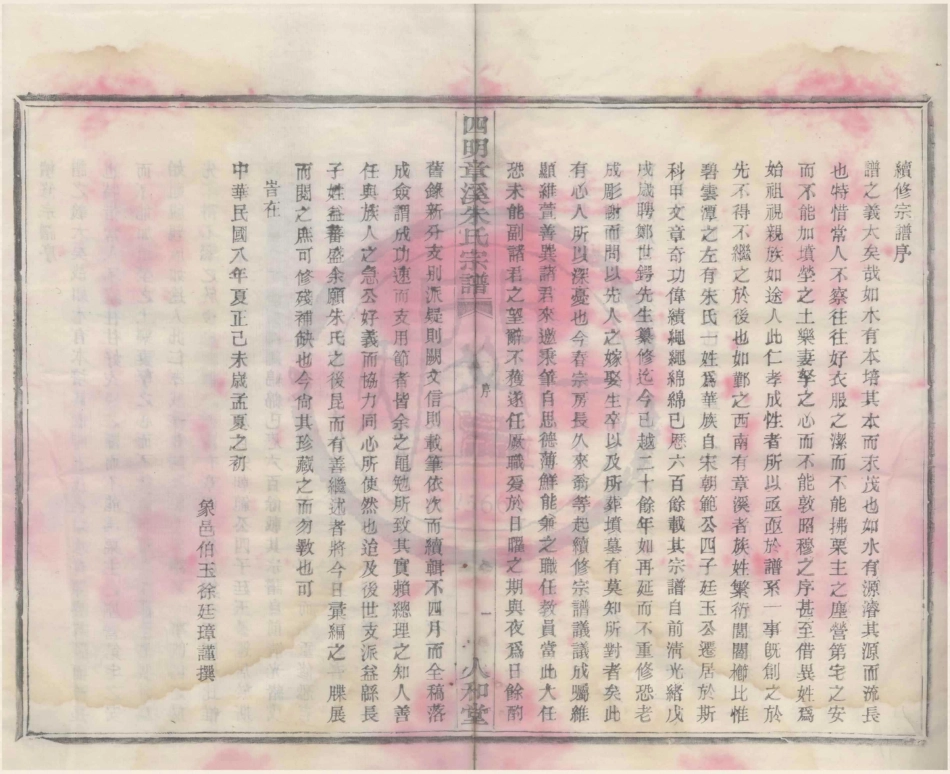 續修宗譜序
譜之義大矣哉如木有本培其本而末茂也如水有源濬其源而流長
也特惜常人不察往往好衣服之潔而不能拂栗主之塵營第宅之安
而不能加墳塋之土樂妻孥之心而不能敦昭穆之序甚至借異姓爲
始祖視親族如途人此仁孝成性者所以亟亟於譜系一事旣創之於
先不得不繼之於後也如鄞之西南有章溪者族姓繁衍閭閻櫛比惟
碧雲潭之左有朱氏一姓爲華族自宋朝範公四子廷玉公遷居於斯
科甲文章奇功偉績繩繩綿綿已歷六百餘載其宗譜自前淸光緒戊
戌歲聘鄭世鍔先生纂修迄今已越二十餘年如再延而不重修恐老
成彫謝而問以先人之嫁娶生卒以及所葬墳墓有莫知所對者矣此
有心人所以深憂也今春宗房長久來翁等起續修宗譜議議成囑維
顯維萱善巽諸君來邀秉筆自思德薄鮮能兼之職任敎員當此大任
恐未能副諸君之望辭不獲遂任厥職爰於日曜之期與夜爲日餘酌
四明章溪朱氏宗譜
序
一
人和堂
舊錄新分支別派疑則闕文信則載筆依次而續輯不四月而全稿落
成僉謂成功速而支用節者皆余之黽勉所致其實賴總理之知人善
任與族人之急公好義而協力同心所使然也迨及後世支派益緜長
子姓益蕃盛余願朱氏之後昆而有善繼述者將今日彙編之一牒展
而閱之庶可修殘補缺也今尙其珍藏之而勿斁也可
旹在
中華民國八年夏正己未歲孟夏之初
象邑伯玉徐廷璋謹撰